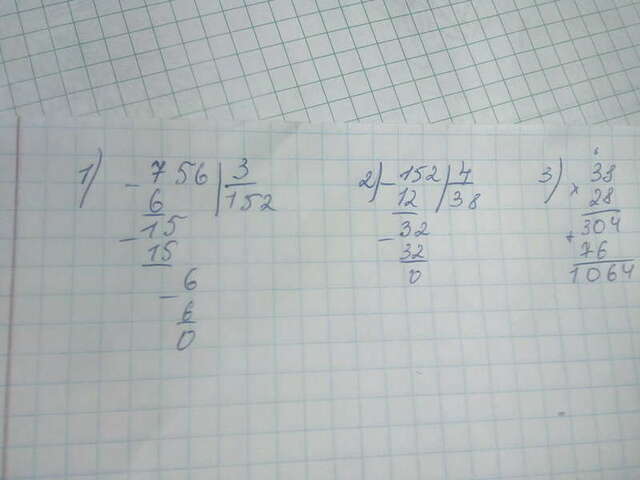 1) - 756 | 3
6 | 152
- 15
15
- 6
6
0
2) - 152 | 4
12 | 38
- 32
32
0
3) 38
× 28
+ 304
76
1064